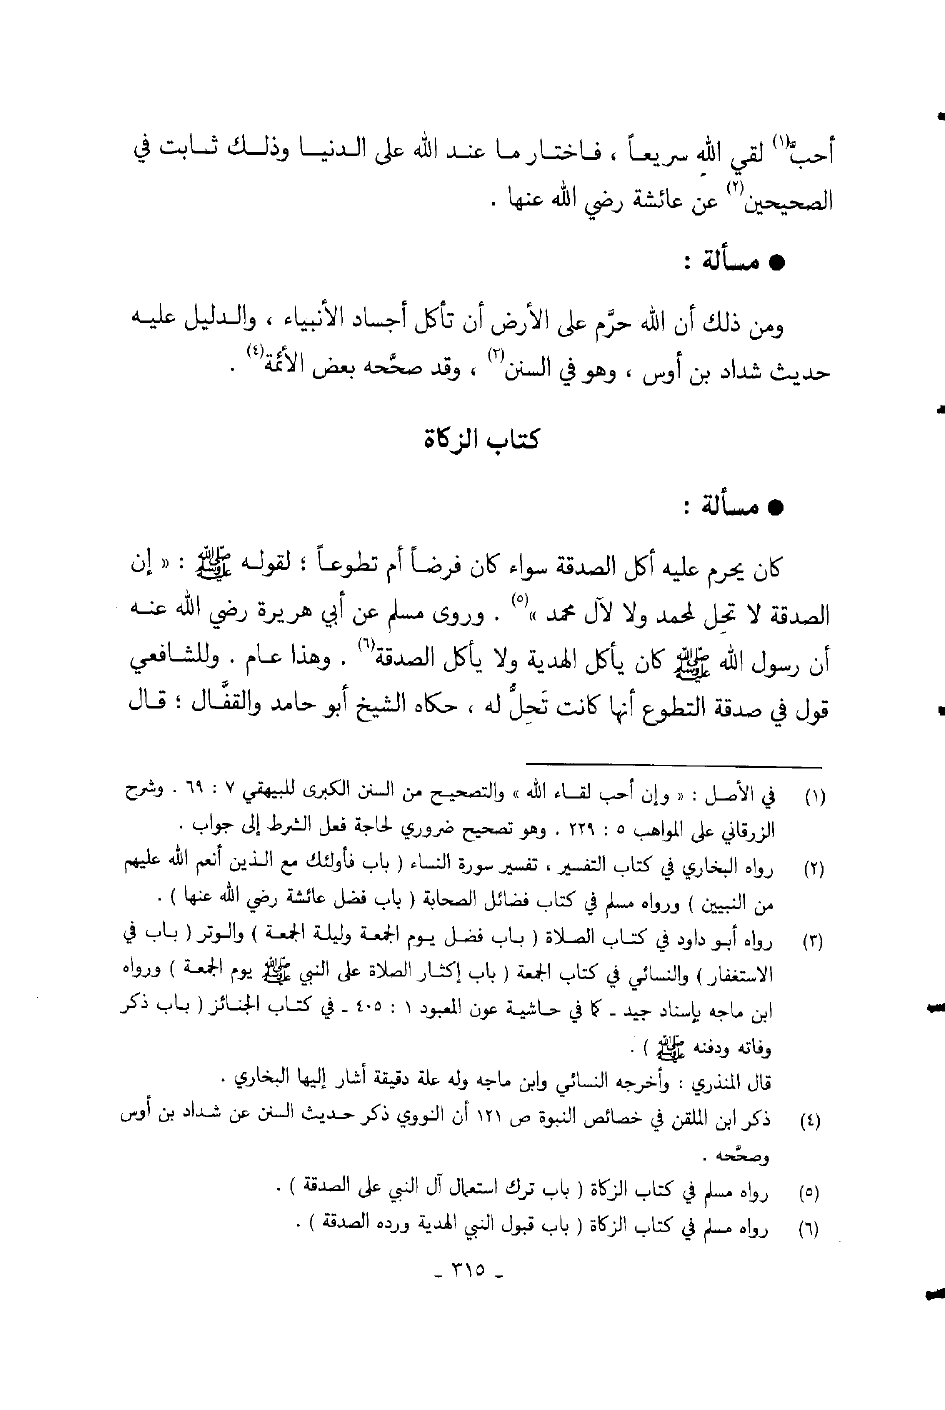 أحبَّ(١) لقي الله سريعاً ، فاختار ما عند الله على الدنيا وذلك ثابت في
الصحيحين(٢) عن عائشة رضي الله عنها .
● مسألة :
ومن ذلك أن الله حرَّم على الأرض أن تأكل أجساد الأنبياء ، والدليل عليه
حديث شداد بن أوس ، وهو في السنن(٣) ، وقد صحَّحه بعض الأئمة(٤) .
كتاب الزكاة
● مسألة :
كان يحرم عليه أكل الصدقة سواء كان فرضاً أم تطوعاً ؛ لقوله ﷺ : « إن
الصدقة لا تحِل لمحمد ولا لآل محمد »(٥) . وروى مسلم عن أبي هريرة رضي الله عنه
أن رسول الله ﷺ كان يأكل الهدية ولا يأكل الصدقة(٦) . وهذا عام . وللشافعي
قول في صدقة التطوع أنها كانت تَحِلُّ له ، حكاه الشيخ أبو حامد والقفَّال ؛ قال
(١) في الأصل : « وإن أحب لقاء الله » والتصحيح من السنن الكبرى للبيهقي ٧ : ٦٩ . وشرح
الزرقاني على المواهب ٥ : ٢٢٩ . وهو تصحيح ضروري لحاجة فعل الشرط إلى جواب .
(٢) رواه البخاري في كتاب التفسير ، تفسير سورة النساء ( باب فأولئك مع الذين أنعم الله عليهم
من النبيين ) ورواه مسلم في كتاب فضائل الصحابة ( باب فضل عائشة رضي الله عنها ) .
(٣) رواه أبو داود في كتاب الصلاة ( باب فضل يوم الجمعة وليلة الجمعة ) والوتر ( باب في
الاستغفار ) والنسائي في كتاب الجمعة ( باب إكثار الصلاة على النبي ﷺ يوم الجمعة ) ورواه
ابن ماجه بإسناد جيد ـ كما في حاشية عون المعبود ١ : ٤٠٥ ـ في كتاب الجنائز ( باب ذكر
وفاته ودفنه ﷺ ) .
قال المنذري : وأخرجه النسائي وابن ماجه وله علة دقيقة أشار إليها البخاري .
(٤) ذكر ابن الملقن في خصائص النبوة ص ١٢١ أن النووي ذكر حديث السنن عن شداد بن أوس
وصحَّحه .
(٥) رواه مسلم في كتاب الزكاة ( باب ترك استعمال آل النبي على الصدقة ) .
(٦) رواه مسلم في كتاب الزكاة ( باب قبول النبي الهدية ورده الصدقة ) .
ـ ٣١٥ ـ